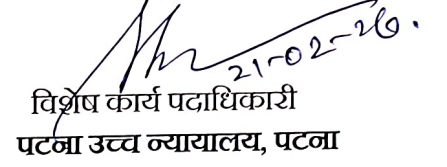 21-02-26.
विशेष कार्य पदाधिकारी
पटना उच्च न्यायालय, पटना